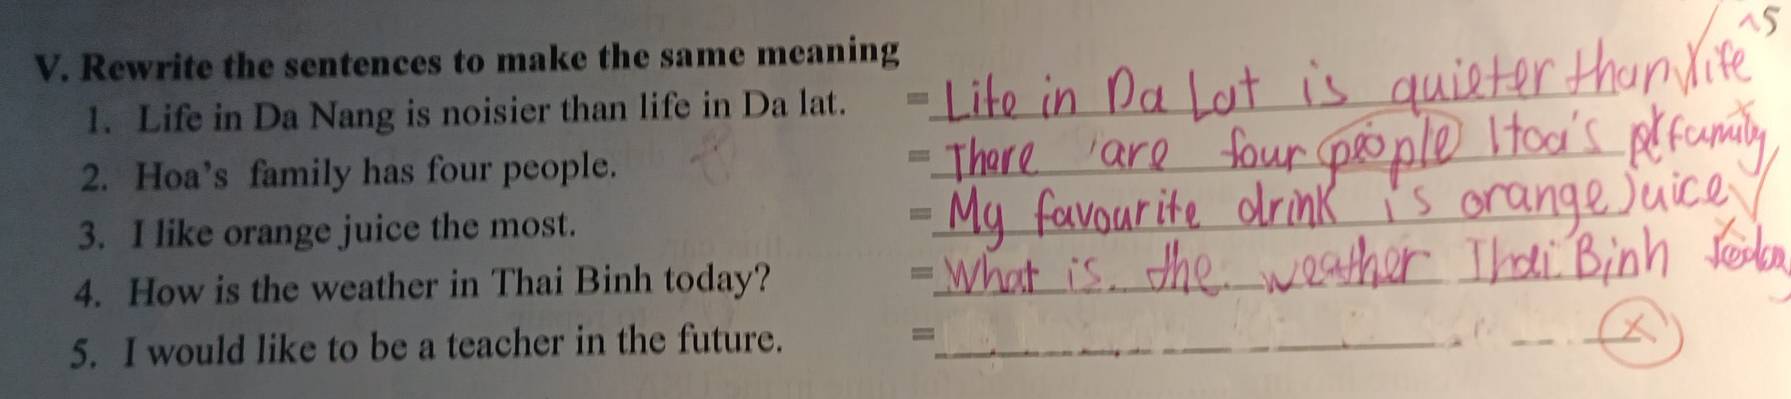 ^5
V. Rewrite the sentences to make the same meaning
1. Life in Da Nang is noisier than life in Da lat. = Life in Da Lat is quieter than life
2. Hoa's family has four people. = There are four people Hoa's family
3. I like orange juice the most. = My favourite drink is orange juice
4. How is the weather in Thai Binh today? = What is the weather Thai Binh
5. I would like to be a teacher in the future. =